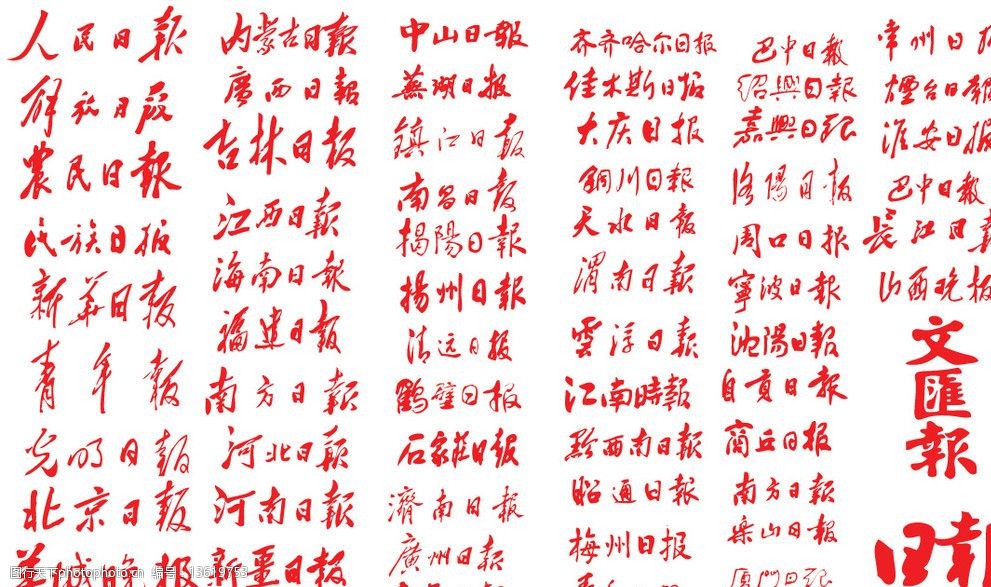 人民日報
解放日报
農民日報
民族日报
新華日报
青年報
光明日報
北京日报
羊城晚报
内蒙古日報
廣西日報
吉林日报
江西日報
海南日報
福建日报
南方日報
河北日報
河南日報
新疆日报
中山日報
蕪湖日报
鎮江日报
南昌日报
揭陽日報
揚州日报
清远日报
鶴壁日报
石家莊日報
濟南日報
廣州日報
齐齐哈尔日报
佳木斯日报
大庆日报
铜川日報
天水日报
渭南日报
雲浮日報
江南時報
黔西南日報
昭通日報
梅州日报
巴中日報
绍興日報
嘉興日报
洛陽日报
周口日报
寧波日报
沈陽日報
自貢日报
商丘日报
南方日報
乐山日報
厦門日报
常州日
煙台日報
淮安日报
巴中日報
長江日報
山西晚报
文
匯
報
日報
图行天下photophoto.cn 编号：13619753